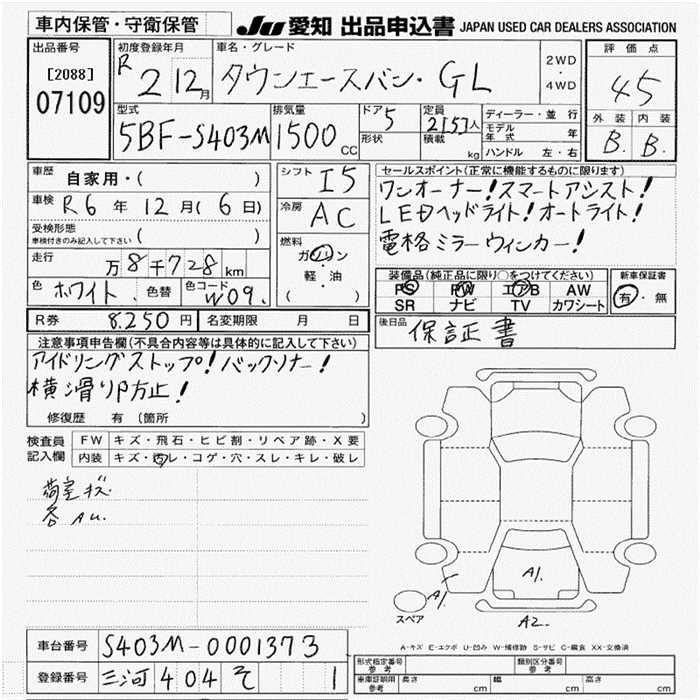 車内保管・守衛保管 JU 愛知 出品申込書 JAPAN USED CAR DEALERS ASSOCIATION
出品番号 初度登録年月 車名・グレード 2WD・4WD 評価点
[2088] R2 12月 タウンエースバン・GL 4.5
07109
型式 排気量 ドア 5 定員 2[5]人 ディーラー・並行 外装 内装
5BF-S403M 1500cc 形状 積載 kg モデル年式 年 B. B.
ハンドル 左・右
車歴 自家用・( ) シフト I5 セールスポイント(正常に機能するものに限ります)
車検 R6年12月(6日) 冷房 AC ワンオーナー!スマートアシスト!
受検形態 車検付きのみ記入して下さい ( ) LEDヘッドライト!オートライト!
燃料 ガソリン・軽・油 ( ) 電格ミラーウィンカー!
走行 万8千728km 装備品(純正品に限り○をつけてください) 新車保証書
色 ホワイト. 色替 色コード W09. PS PW エアB AW 有・無
SR ナビ TV カワシート
R券 8,250円 名変期限 月 日 後日品 保証書
注意事項申告欄(不具合内容等は具体的に記入して下さい)
アイドリングストップ!バックソナー!
横滑り防止!
修復歴 有(箇所 )
検査員記入欄 FW キズ・飛石・ヒビ割・リペア跡・X要
内装 キズ・汚レ・コゲ・穴・スレ・キレ・破レ
荷室キズ.
各AU.
A1.
A1.
スペア A2.
A-キズ E-エクボ U-凹み W-補修跡 S-サビ C-腐食 XX-交換済
車台番号 S403M-0001373
登録番号 三河 404 そ 1
形式指定番号 参考 類別区分番号 参考
車庫証明用 参考 長さ cm 幅 cm 高さ cm